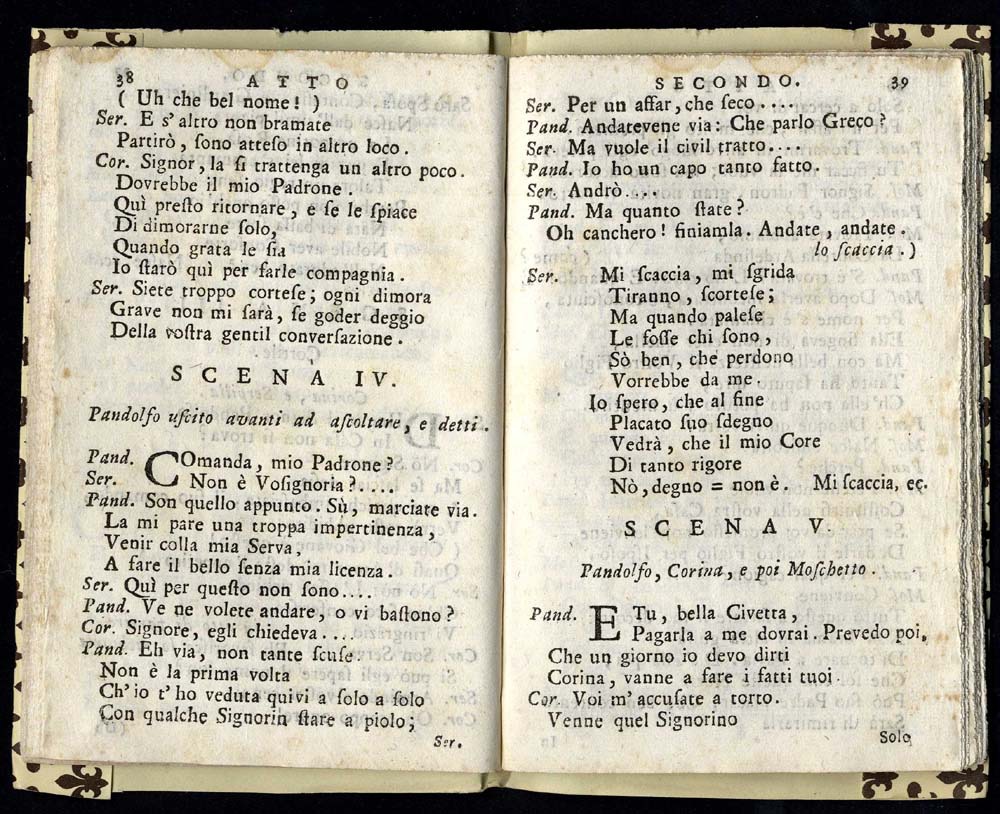 38 ATTO
( Uh che bel nome! )
Ser. E s'altro non bramate
Partirò, ſono atteſo in altro loco.
Cor. Signor, la ſi trattenga un altro poco.
Dovrebbe il mio Padrone
Quì preſto ritornare, e ſe le ſpiace
Di dimorarne ſolo,
Quando grata le ſia
Io ſtarò quì per farle compagnia.
Ser. Siete troppo corteſe; ogni dimora
Grave non mi ſarà, ſe goder deggio
Della voſtra gentil converſazione.
SCENA IV.
Pandolfo uſcito avanti ad aſcoltare, e detti.
Pand. COmanda, mio Padrone?
Ser. Non è Voſignoria?....
Pand. Son quello appunto. Sù, marciate via.
La mi pare una troppa impertinenza,
Venir colla mia Serva,
A fare il bello ſenza mia licenza.
Ser. Quì per queſto non ſono....
Pand. Ve ne volete andare, o vi baſtono?
Cor. Signore, egli chiedeva....
Pand. Eh via, non tante ſcuſe.
Non è la prima volta
Ch'io t'ho veduta quivi a ſolo a ſolo
Con qualche Signorin ſtare a piolo;
Ser.
SECONDO. 39
Ser. Per un affar, che ſeco....
Pand. Andatevene via: Che parlo Greco?
Ser. Ma vuole il civil tratto....
Pand. Io ho un capo tanto fatto.
Ser. Andrò....
Pand. Ma quanto ſtate?
Oh canchero! finiamla. Andate, andate.
lo ſcaccia.)
Ser. Mi ſcaccia, mi ſgrida
Tiranno, ſcorteſe;
Ma quando paleſe
Le foſſe chi ſono,
Sò ben, che perdono
Vorrebbe da me.
Io ſpero, che al fine
Placato ſuo ſdegno
Vedrà, che il mio Core
Di tanto rigore
Nò, degno = non è. Mi ſcaccia, ec.
SCENA V.
Pandolfo, Corina, e poi Moſchetto.
Pand. E Tu, bella Civetta,
Pagarla a me dovrai. Prevedo poi,
Che un giorno io devo dirti
Corina, vanne a fare i fatti tuoi.
Cor. Voi m'accuſate a torto.
Venne quel Signorino
Solo